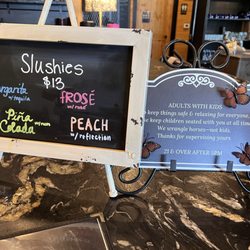 Slushies
$13
margarita
w/ tequila
FROSÉ
w/ rosé
Piña
Colada
w/ rum
PEACH
w/ reflection
ADULTS WITH KIDS
keep things safe & relaxing for everyone.
keep children seated with you at all times
We wrangle horses—not kids.
Thanks for supervising yours
21 & OVER AFTER 5PM